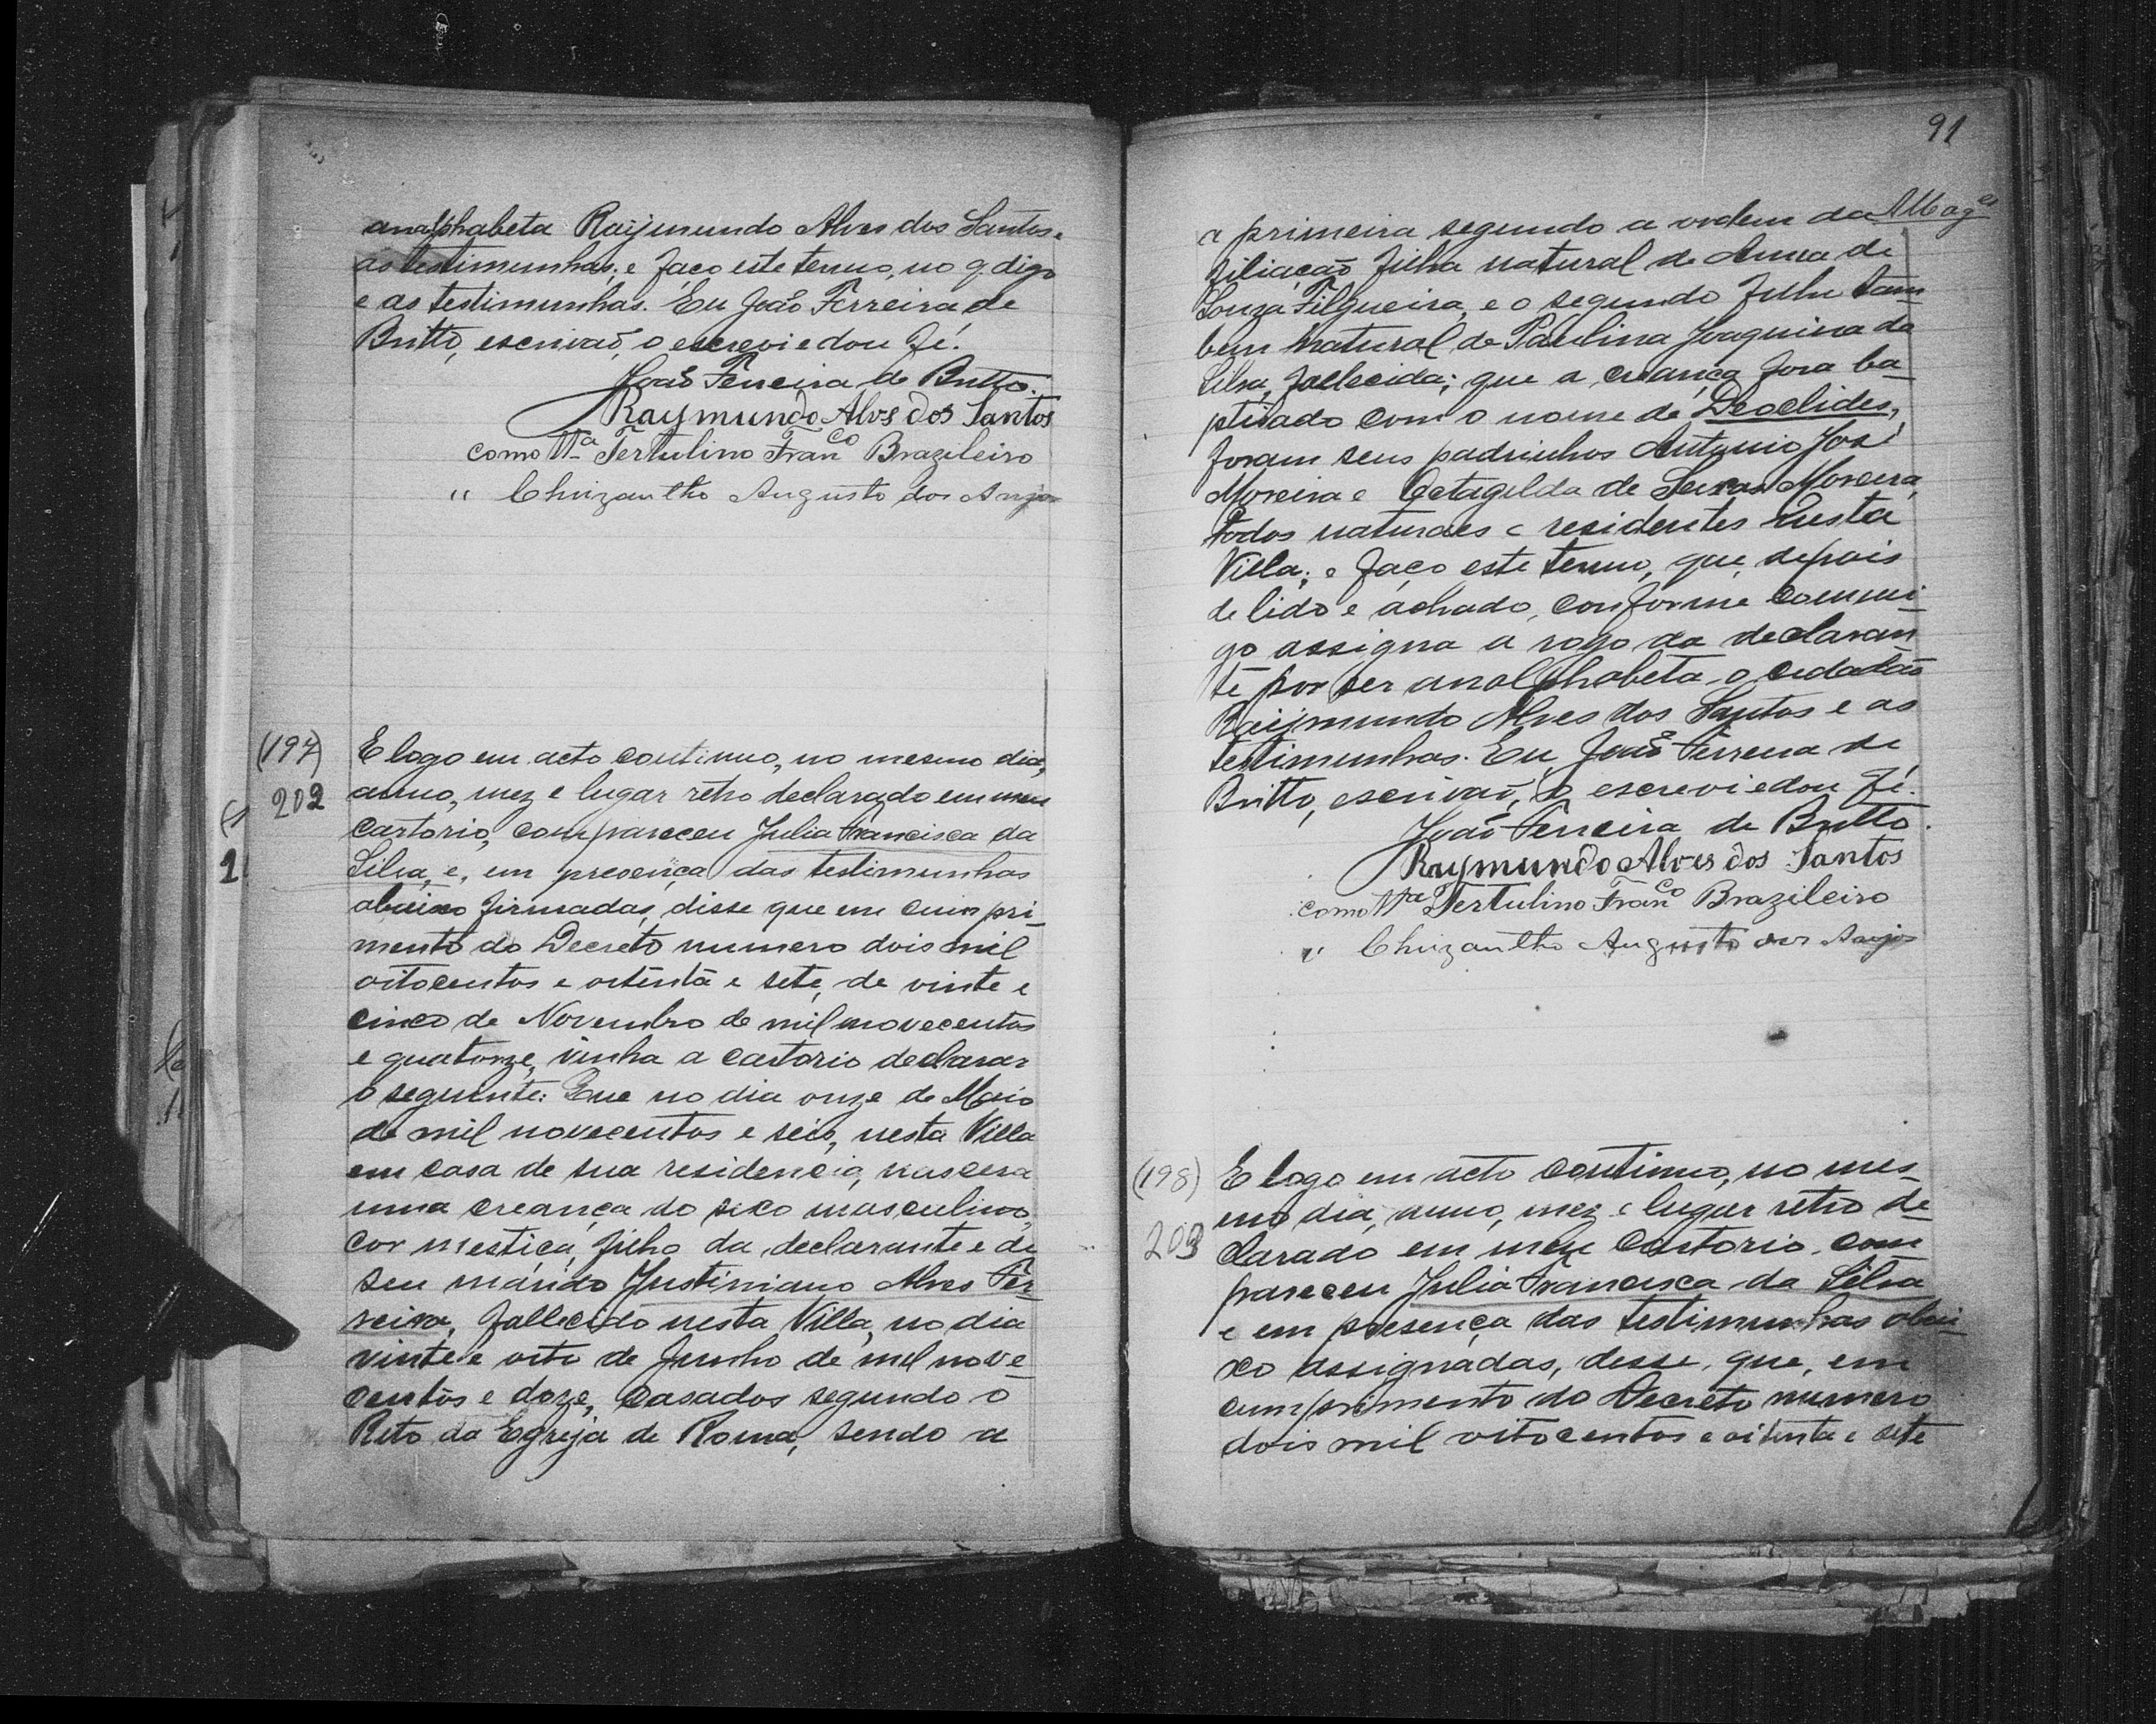 analphabeta Raÿmundo Alves dos Santos e
as testimunhas; e faço este termo, no q. digo
e as testimunhas. Eu João Ferreira de
Britto, escrivaõ, o escrevi e dou fé.
João Ferreira de Britto.
Raymundo Alvs dos Santos
como Ttª Tertulino Franco Brazileiro
" Chrizantho Augusto dos Anjos
(197)
202
E logo em acto continuo, no mesmo dia,
anno, mez e lugar retro declarado em meu
cartorio, compareceu Julia Francisca da
Silva, e, em presença das testimunhas
abaixo firmadas, disse que em cumpri-
mento do Decreto numero dois mil
oitocentos e oitenta e sete, de vinte e
cinco de Novembro de mil novecentos
e quatorze, vinha a cartorio declarar
o seguinte: Que no dia onze de Maio
de mil novecentos e seis, nesta Villa
em casa de sua residencia, nascera
uma creança do sexo masculino,
cor mestiça, filho da declarante e de
seu marido Justiniano Alves Fer-
reira, fallecido nesta Villa, no dia
vinte e oito de Junho de mil nove-
centos e doze, casados segundo o
Rito da Egreja de Roma, sendo a
91
a primeira segundo a ordem da
filiação filha natural de Anna de
Souza Filgueira, e o segundo filho tam-
bem natural de Paulina Joaquina da
Silva, fallecida; que a creança fora ba-
ptisado com o nome de Deoclides,
foram seus padrinhos Antonio José
Moreira e Moreira,
todos naturaes e residentes nesta
Villa; e faço este termo, que, depois
de lido e achado, conforme commi-
go assigna a rogo da declaran-
te por ser analphabeta o cidadão
Raÿmundo Alves dos Santos e as
testimunhas. Eu, João Ferreira de
Britto, escrivaõ, o escrevi e dou fé.
João Ferreira de Britto.
Raymundo Alves dos Santos
como Ttª Tertulino Franco Brazileiro
" Chrizantho Augusto dos Anjos
(198)
203
E logo em acto continuo, no mes-
mo dia, anno, mez e lugar retro de-
clarado em meu Cartorio, com-
pareceu Julia Francisca da Silva
e em presença das testimunhas abai-
xo assignadas, disse, que, em
cumprimento do Decreto numero
dois mil oitocentos e oitenta e sete